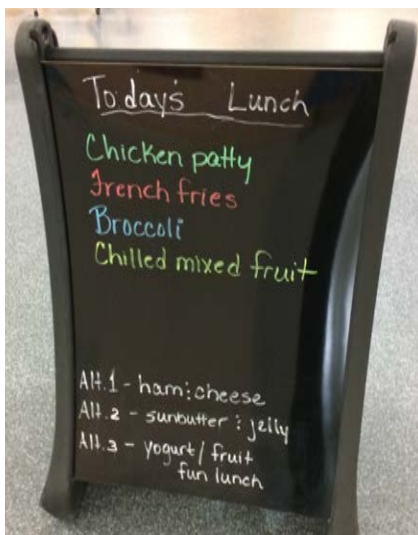 Today's Lunch
Chicken patty
French fries
Broccoli
Chilled mixed fruit
Alt.1 - ham & cheese
Alt.2 - sunbutter & jelly
Alt.3 - yogurt/fruit
fun lunch